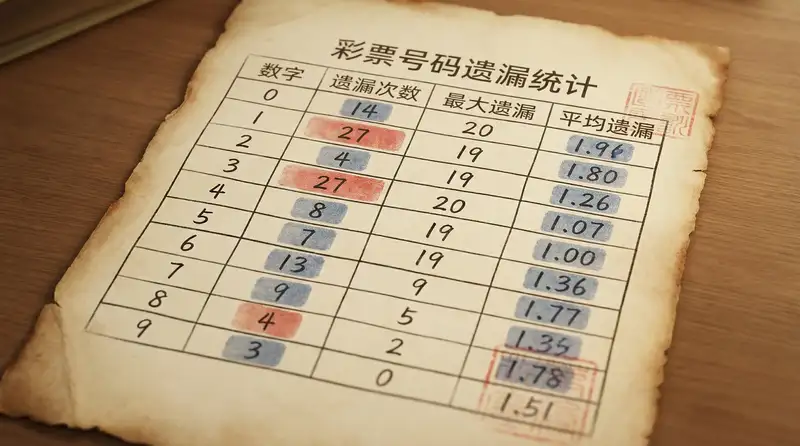 彩票号码遗漏统计
数字 遗漏次数 最大遗漏 平均遗漏
0 14 20 1.96
1 27 19 1.80
2 4 19 1.26
3 27 20 1.07
4 8 19 1.00
5 7 19 1.36
6 13 9 1.77
7 9 5 1.35
8 4 2 1.78
9 3 0 1.51